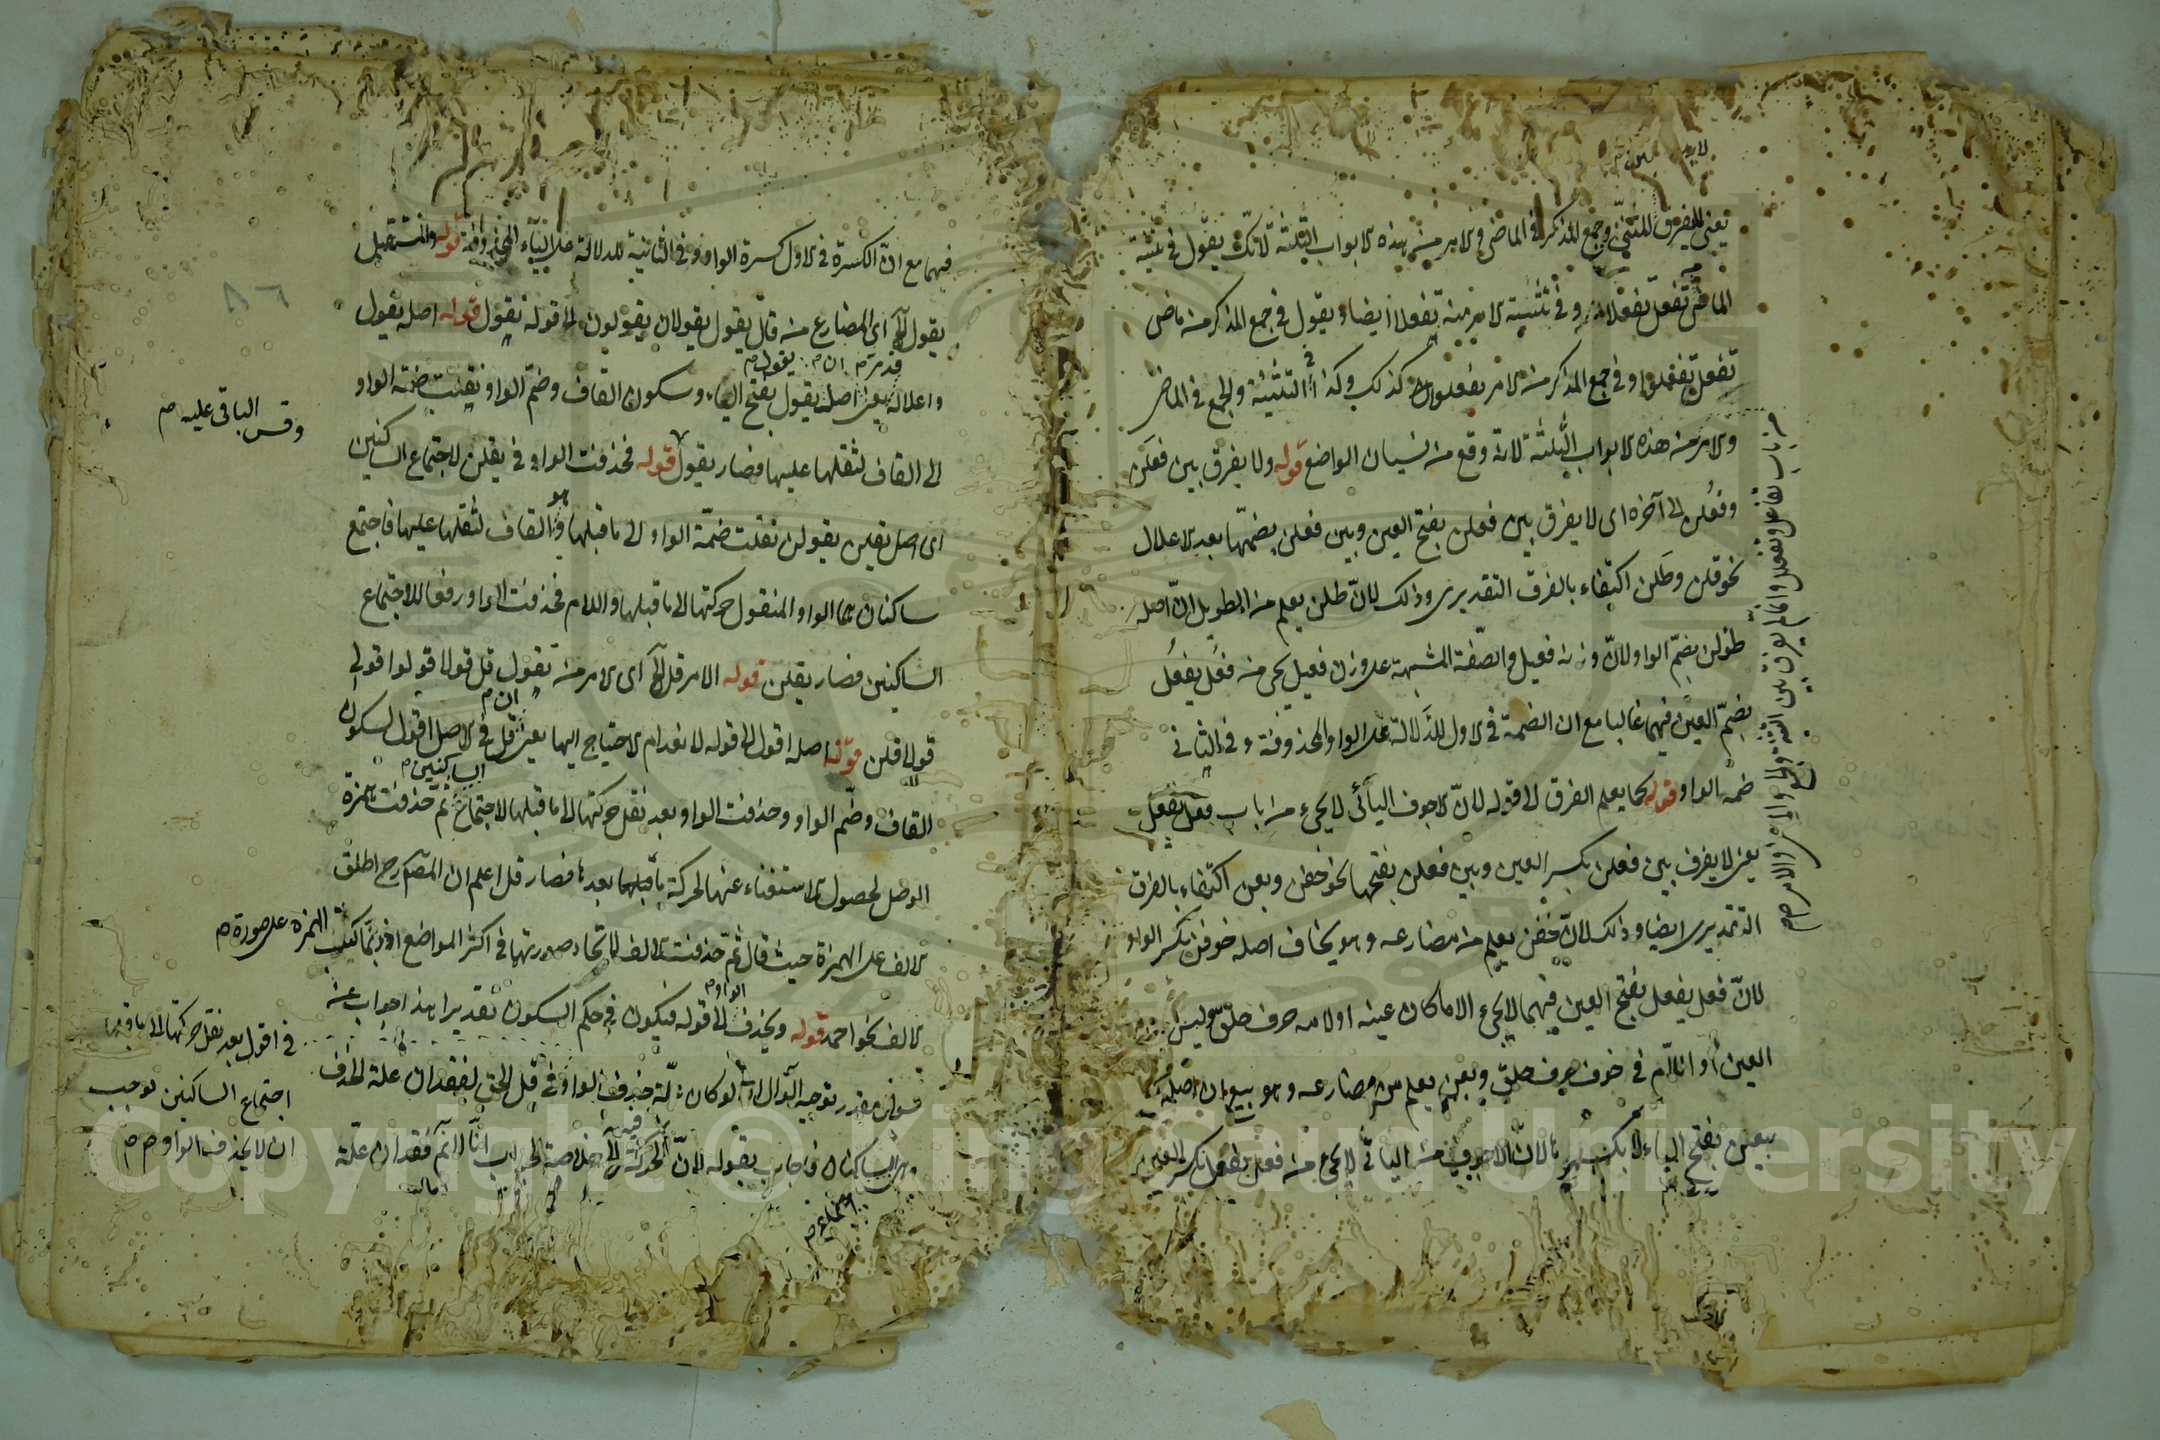 يعنى لا يفرق بين المثنى وجمع المذكر فى الماضى والامر من هذه الابواب الثلثة لانك تقول فى تثنية
الماضى تفعل تفعلا وفى تثنية الامر منه تفعلا ايضا وتقول فى جمع المذكر من ماضى
تفعل تفعلوا وفى جمع المذكر من الامر تفعلوا كذلك وكذا فى التثنية والجمع فى الماضى
والامر من هذه الابواب الثلثة لانه وقع من نسيان الواضع قوله ولا يفرق بين فعلن
وفعلن الى آخره اى لا يفرق بين فعلن بفتح العين وبين فعلن بضمها بعد الاعلال
نحو قلن وطلن اكتفاء بالفرق التقديرى وذلك لان طلن يعلم من الطويل ان اصله
طولن بضم الواو لان وزنه فعيل والصفة المشبهة على وزن فعيل يجىء من فعل يفعل
بضم العين فيهما غالبا مع ان الضمة فى الاول للدلالة على الواو المحذوفة وفى الثانى
ضمة الواو قوله كما يعلم الفرق الى قوله لان الاجوف اليائى لا يجىء من باب فعل يفعل
يعنى لا يفرق بين فعلن بكسر العين وبين فعلن بفتحها نحو خفن وبعن اكتفاء بالفرق
التقديرى ايضا وذلك لان خفن يعلم من مضارعه وهو يخاف اصله خوفن بكسر الواو
لان فعل يفعل بفتح العين فيهما لا يجىء الا ما كان عينه او لامه حرف حلق وليس
العين او اللام فى خوف حرف حلق وبعن يعلم من مضارعه وهو يبيع ان اصله
بيعن بفتح الياء لا بكسرها لان الاجوف من اليائى لا يجىء من فعل يفعل بكسر العين
من باب تفاعل وتفعلل
فيهما مع ان الكسرة فى الاول كسرة الواو وفى الثانية للدلالة على الياء المحذوفة قوله والمستقبل
يقول الخ اى المضارع من قال يقول يقولان يقولون الى قوله نقول قوله اصله يقول
واعلاله يعنى اصل يقول يقول بفتح الياء وسكون القاف وضم الواو نقلت ضمة الواو
الى القاف لثقلها عليها فصار يقول قوله فحذفت الواو فى يقلن لاجتماع الساكنين
اى اصل يقلن يقولن نقلت ضمة الواو الى ما قبلها وهو القاف لثقلها عليها فاجتمع
ساكنان هما الواو المنقول حركتها الى ما قبلها واللام فحذفت الواو رفعا للاجتماع
الساكنين فصار يقلن قوله الامر قل الخ اى الامر من تقول قل قولا قولوا قولى
قولا قلن قوله اصله اقول الى قوله لانعدام الاحتياج اليها يعنى ان قل فى الاصل اقول بسكون
القاف وضم الواو وحذفت الواو بعد نقل حركتها الى ما قبلها لاجتماع الساكنين ثم حذفت همزة
الوصل لحصول الاستغناء عنها لحركة ما قبلها بعدها فصار قل اعلم ان المص رح اطلق
الالف على الهمزة حيث قال ثم حذفت الالف لاتحاد صورتهما فى اكثر المواضع اذ ربما كتبت الهمزة على صورة
الالف نحو احمد قوله ويحذف الواو الى قوله فيكون فى حكم السكون تقديرا هذا جواب عن
سؤال مقدر توجيه السؤال ان لو كان علة حذف الواو فى قل الحق لفقدان علة الحذف
وهى اجتماع الساكنان فاجاب بقوله لان الحركة فيه الخ خلاصة الجواب انا لا نم فقدان علة
وقس الباقى عليه
فى اقول بعد نقل حركتها الى ما قبلها
اجتماع الساكنين لوجب
ان لا يحذف الواو
٨٦
Copyright © King Saud University